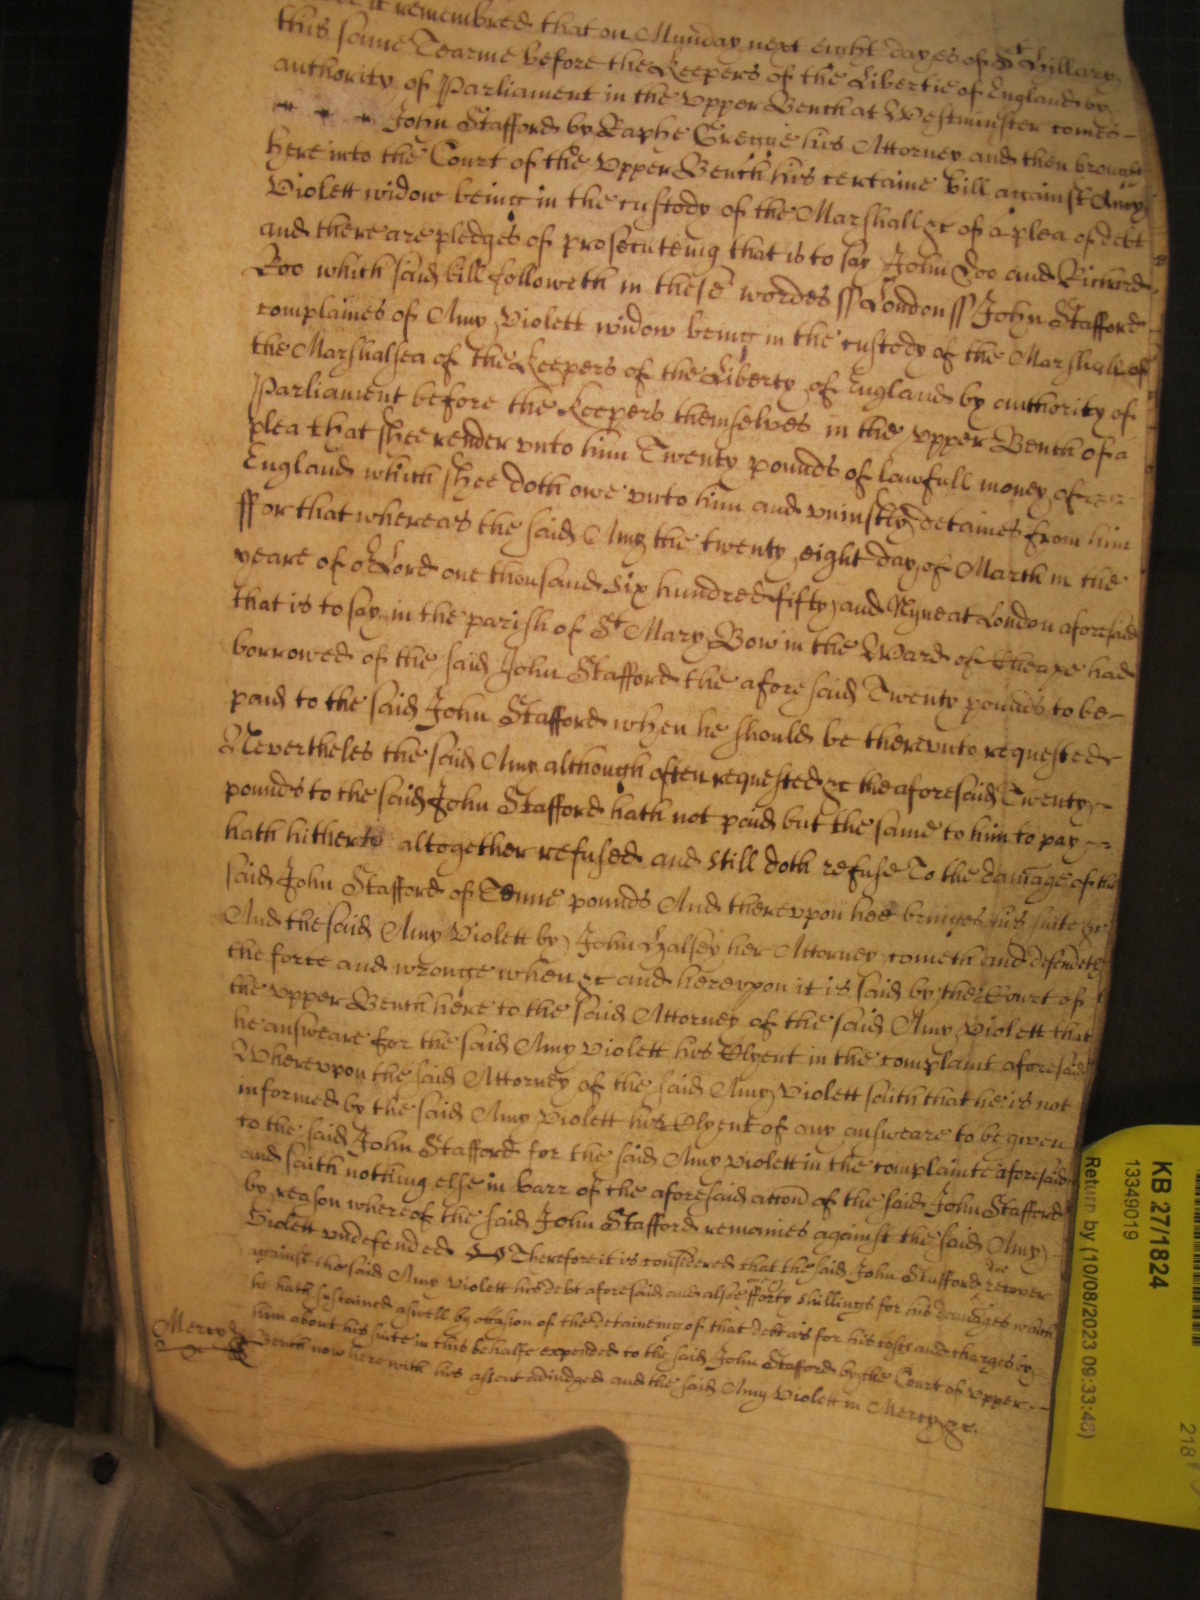 it remembred that on Munday next eight dayes of St Hillary
this same Tearme before the Keepers of the Libertie of England by
authority of Parliament in the Vpper Bench at Westminster comes
John Stafford by Raphe Gregge his Attorney and then brought
here into the Court of the Vpper Bench his certaine bill against Amy
Violett widow being in the custody of the Marshall &c of a plea of debt
and there are pledges of prosecuteing that is to say John Doo and Richard
Roo which said bill followeth in these wordes ss London ss John Stafford
complaines of Amy Violett widow being in the custody of the Marshall of
the Marshalsea of the Keepers of the Liberty of England by authority of
Parliament before the Keepers themselves in the vpper Bench of a
plea that shee render vnto him Twenty pounds of lawfull money of
England which shee doth owe vnto him and vniustly detaines from him
ffor that whereas the said Amy the twenty eight day of March in the
yeare of or Lord one thousand six hundred fifty and Nyne at London aforesaid
that is to say in the parish of St Mary Bow in the Ward of Cheape had
borrowed of the said John Stafford the aforesaid Twenty pounds to be
paid to the said John Stafford when he should be therevnto requested
Nevertheles the said Amy although often requested &c the aforesaid Twenty
pounds to the said John Stafford hath not paid but the same to him to pay
hath hitherto altogether refused and still doth refuse To the damage of the
said John Stafford of Tenne pounds And therevpon hee bringes his suite &c
And the said Amy Violett by John Halsey her Attorney cometh and defendeth
the force and wronge when &c and herevpon it is said by the Court of
the vpper Bench here to the said Attorney of the said Amy Violett that
he answeare for the said Amy Violett his Clyent in the complaint aforesaid
Wherevpon the said Attorney of the said Amy Violett saith that he is not
informed by the said Amy Violett his Clyent of any answeare to be given
to the said John Stafford for the said Amy Violett in the complainte aforesaid
and saith nothing else in barr of the aforesaid accon of the said John Stafford
by reason whereof the said John Stafford remaines against the said Amy
Violett vndefended Therefore it is considered that the said John Stafford doe recover
against the said Amy Violett his debt aforesaid and alsoe fforty shillings for his damages which
he hath sustained aswell by occasion of the detaineing of that debt as for his costs and charges by
him about his suite in this behalfe expended to the said John Stafford by the Court of vpper
Mercy Bench now here with his assent adiudged and the said Amy Violett in Mercy &c.
KB 27/1824
13349019
Return by (10/08/2023 09:33:48)